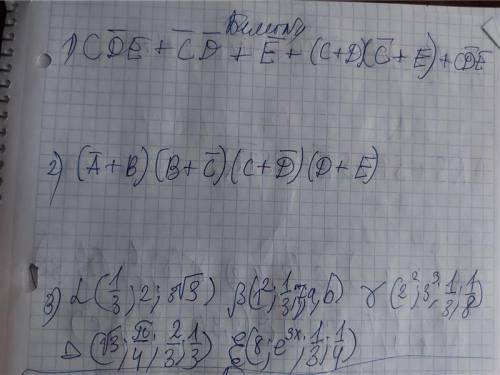 1) CD̅E̅ + C̅ D̅ + E̅ + (C+D)(C̅+E) + C̅D̅E̅
2) (A̅+B)(B+C̅)(C+D̅)(D+E̅)
3) α(1/3; 2; 3√3) β(1²; 1/3; a, b) γ(2²; 3³; 1/3; 1/8)
Δ(√3; π/4; 2/3; 1/3) ξ(8; e³ˣ; 1/3; 1/4)